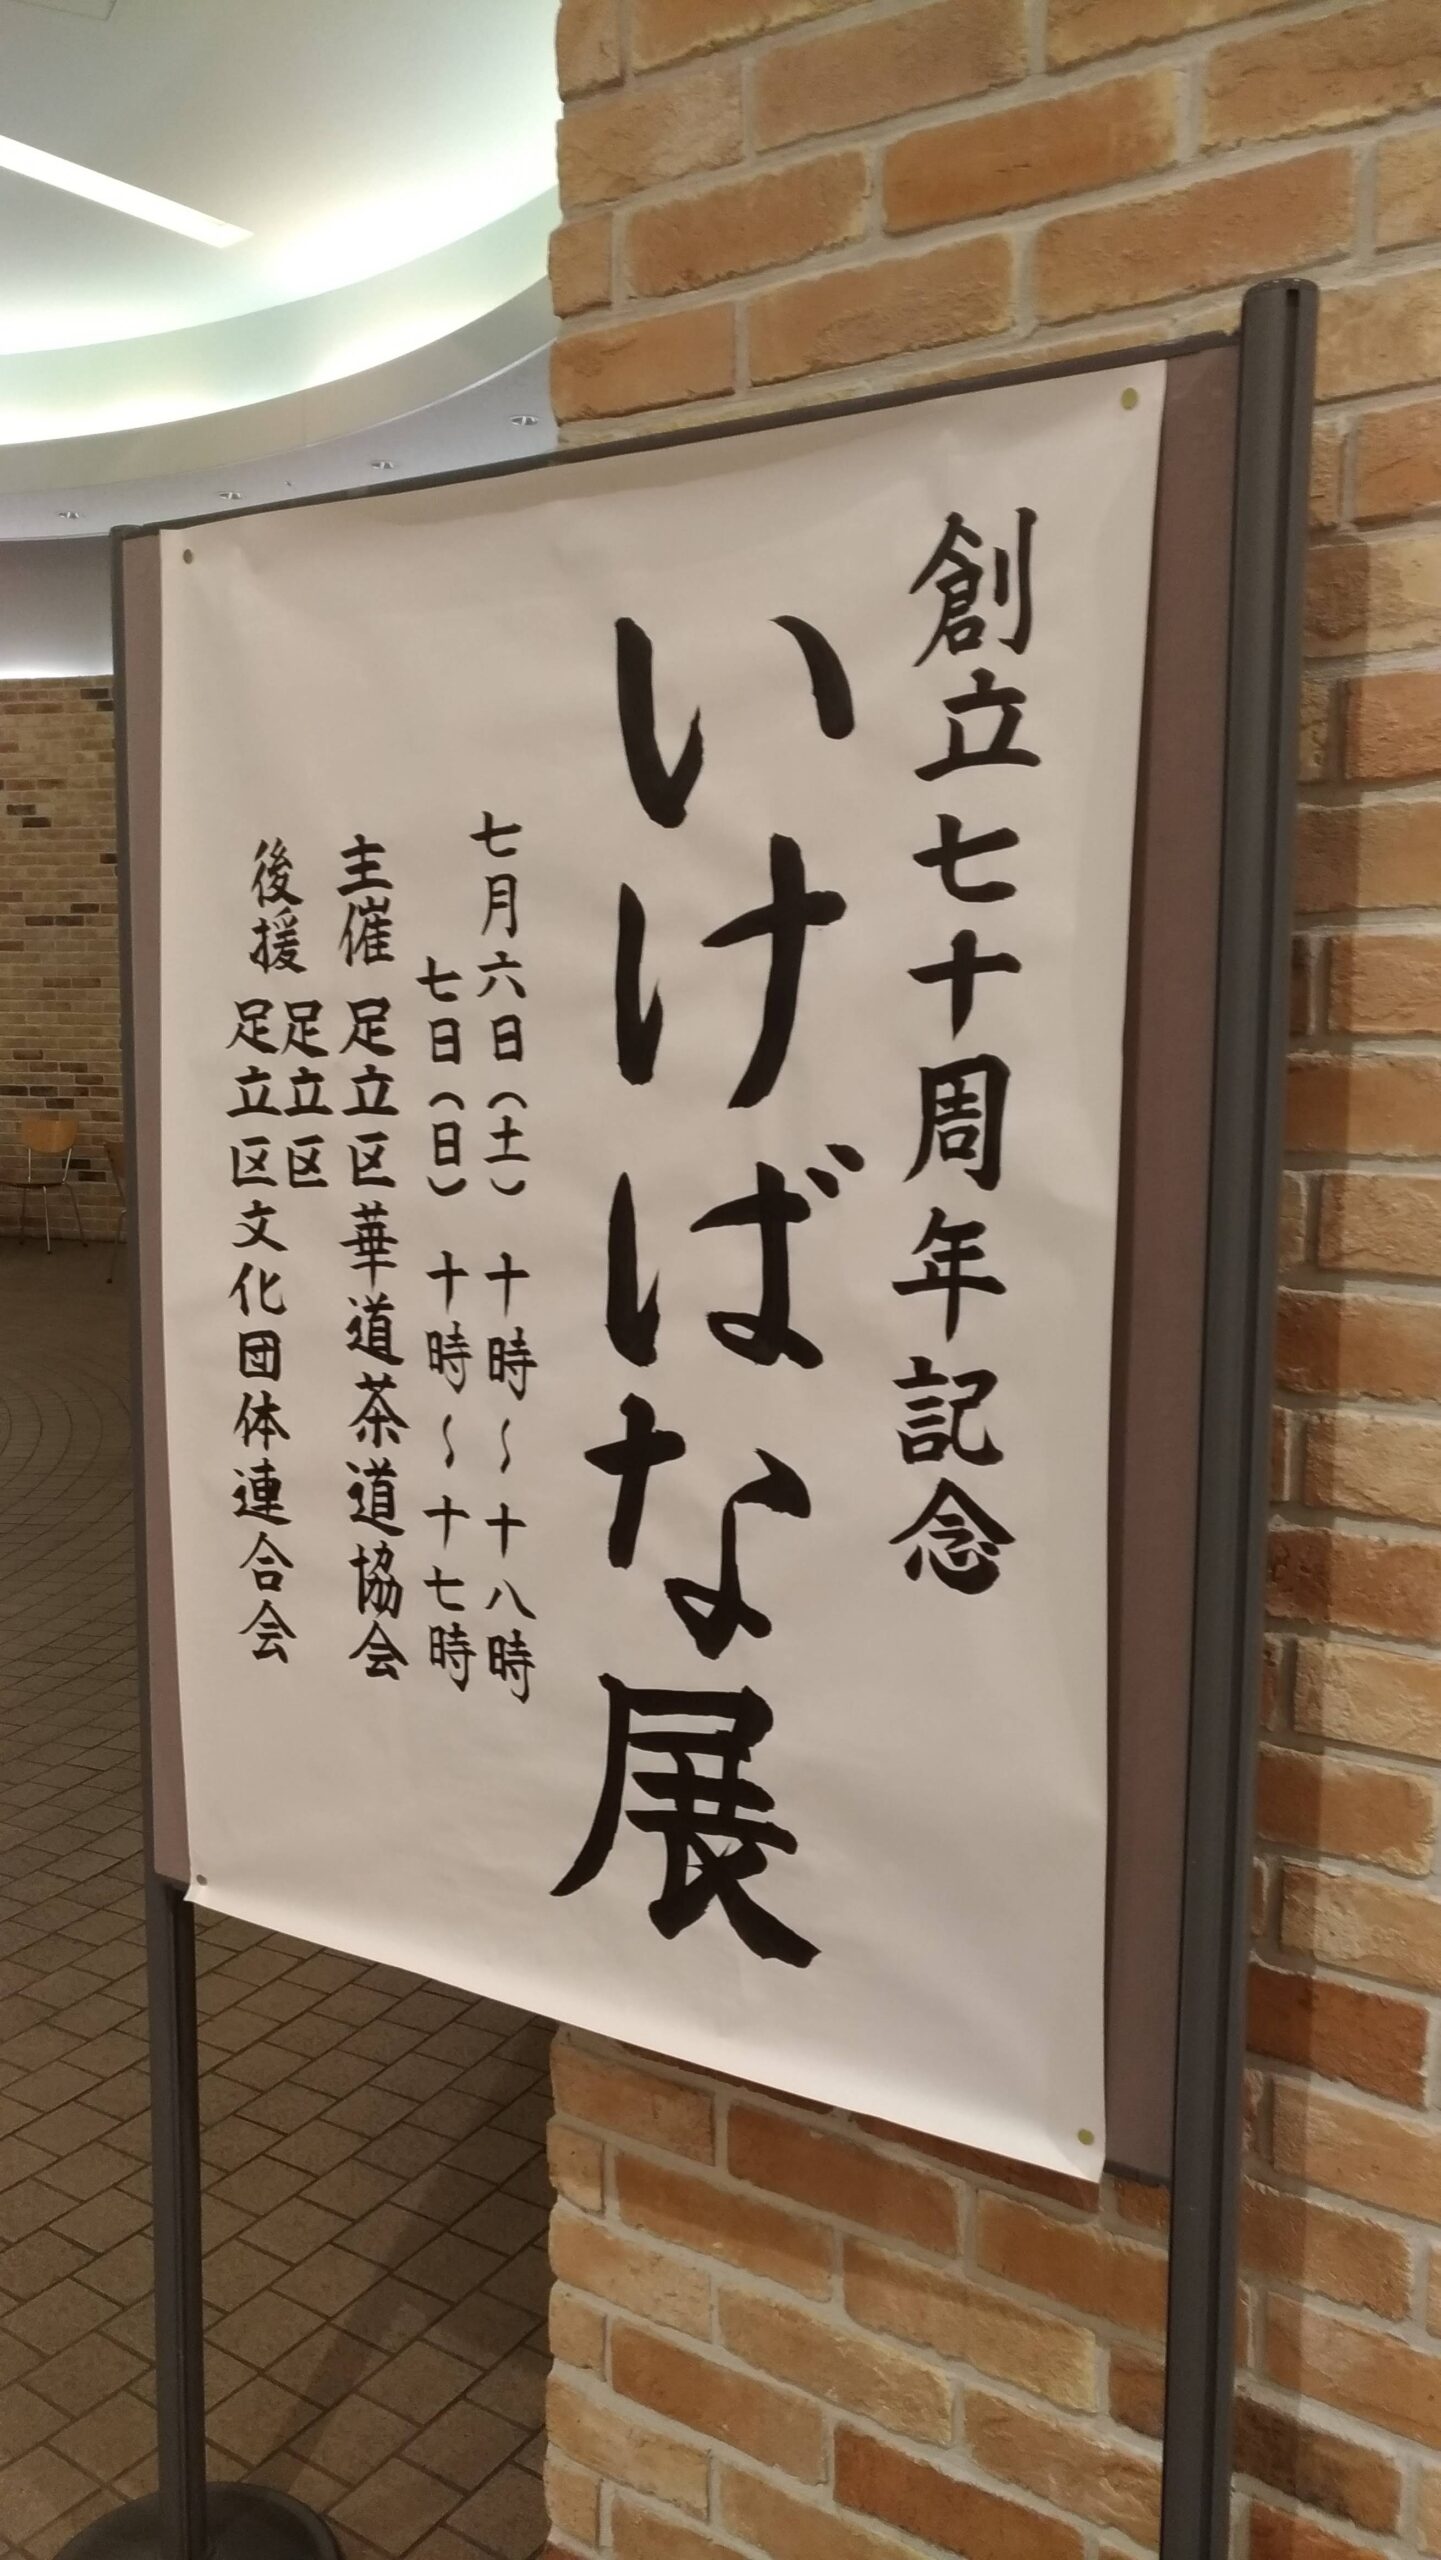 創立七十周年記念
いけばな展
七月六日(土) 十時～十八時
七日(日) 十時～十七時
主催 足立区華道茶道協会
後援 足立区
足立区文化団体連合会